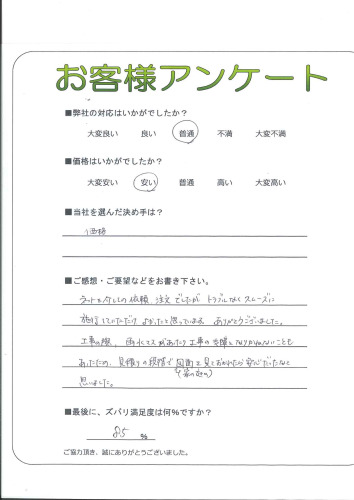 お客様アンケート
■弊社の対応はいかがでしたか?
大変良い 良い 普通 不満 大変不満
■価格はいかがでしたか?
大変安い 安い 普通 高い 大変高い
■当社を選んだ決め手は?
価格
■ご感想・ご要望などをお書き下さい。
ネットからの依頼、注文でしたが トラブルなくスムーズに
施行していただけ よかったと思っています。ありがとうございました。
工事の際、雨水マスがあたり工事の支障となりかねないことも
あったため、見積りの段階で図面を見ておかれたら安心だったなと
(家の廻り)
思いました。
■最後に、ズバリ満足度は何%ですか?
85 %
ご協力頂き、誠にありがとうございました。